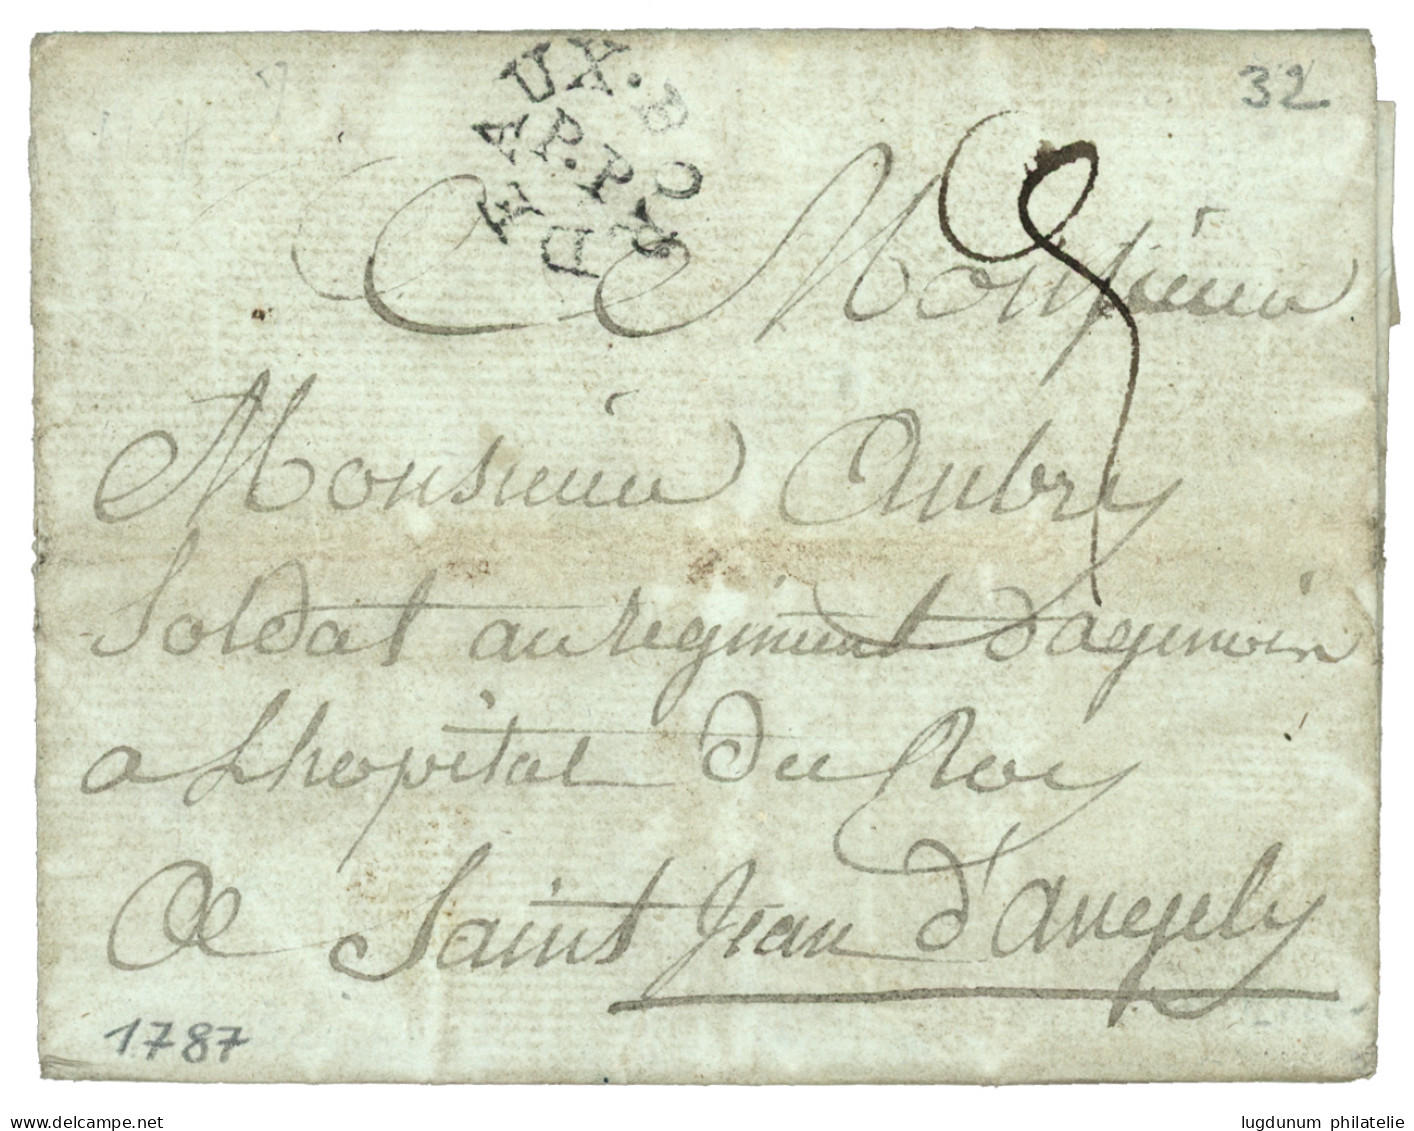 32
AP.P
DE BORDEAUX.
Monsieur
Monsieur Aubry
Soldat au regiment dagenoin
a Lhopital du Roy
A Saint Jean d'angely
1787
www.delcampe.net
lugdunum philatelie